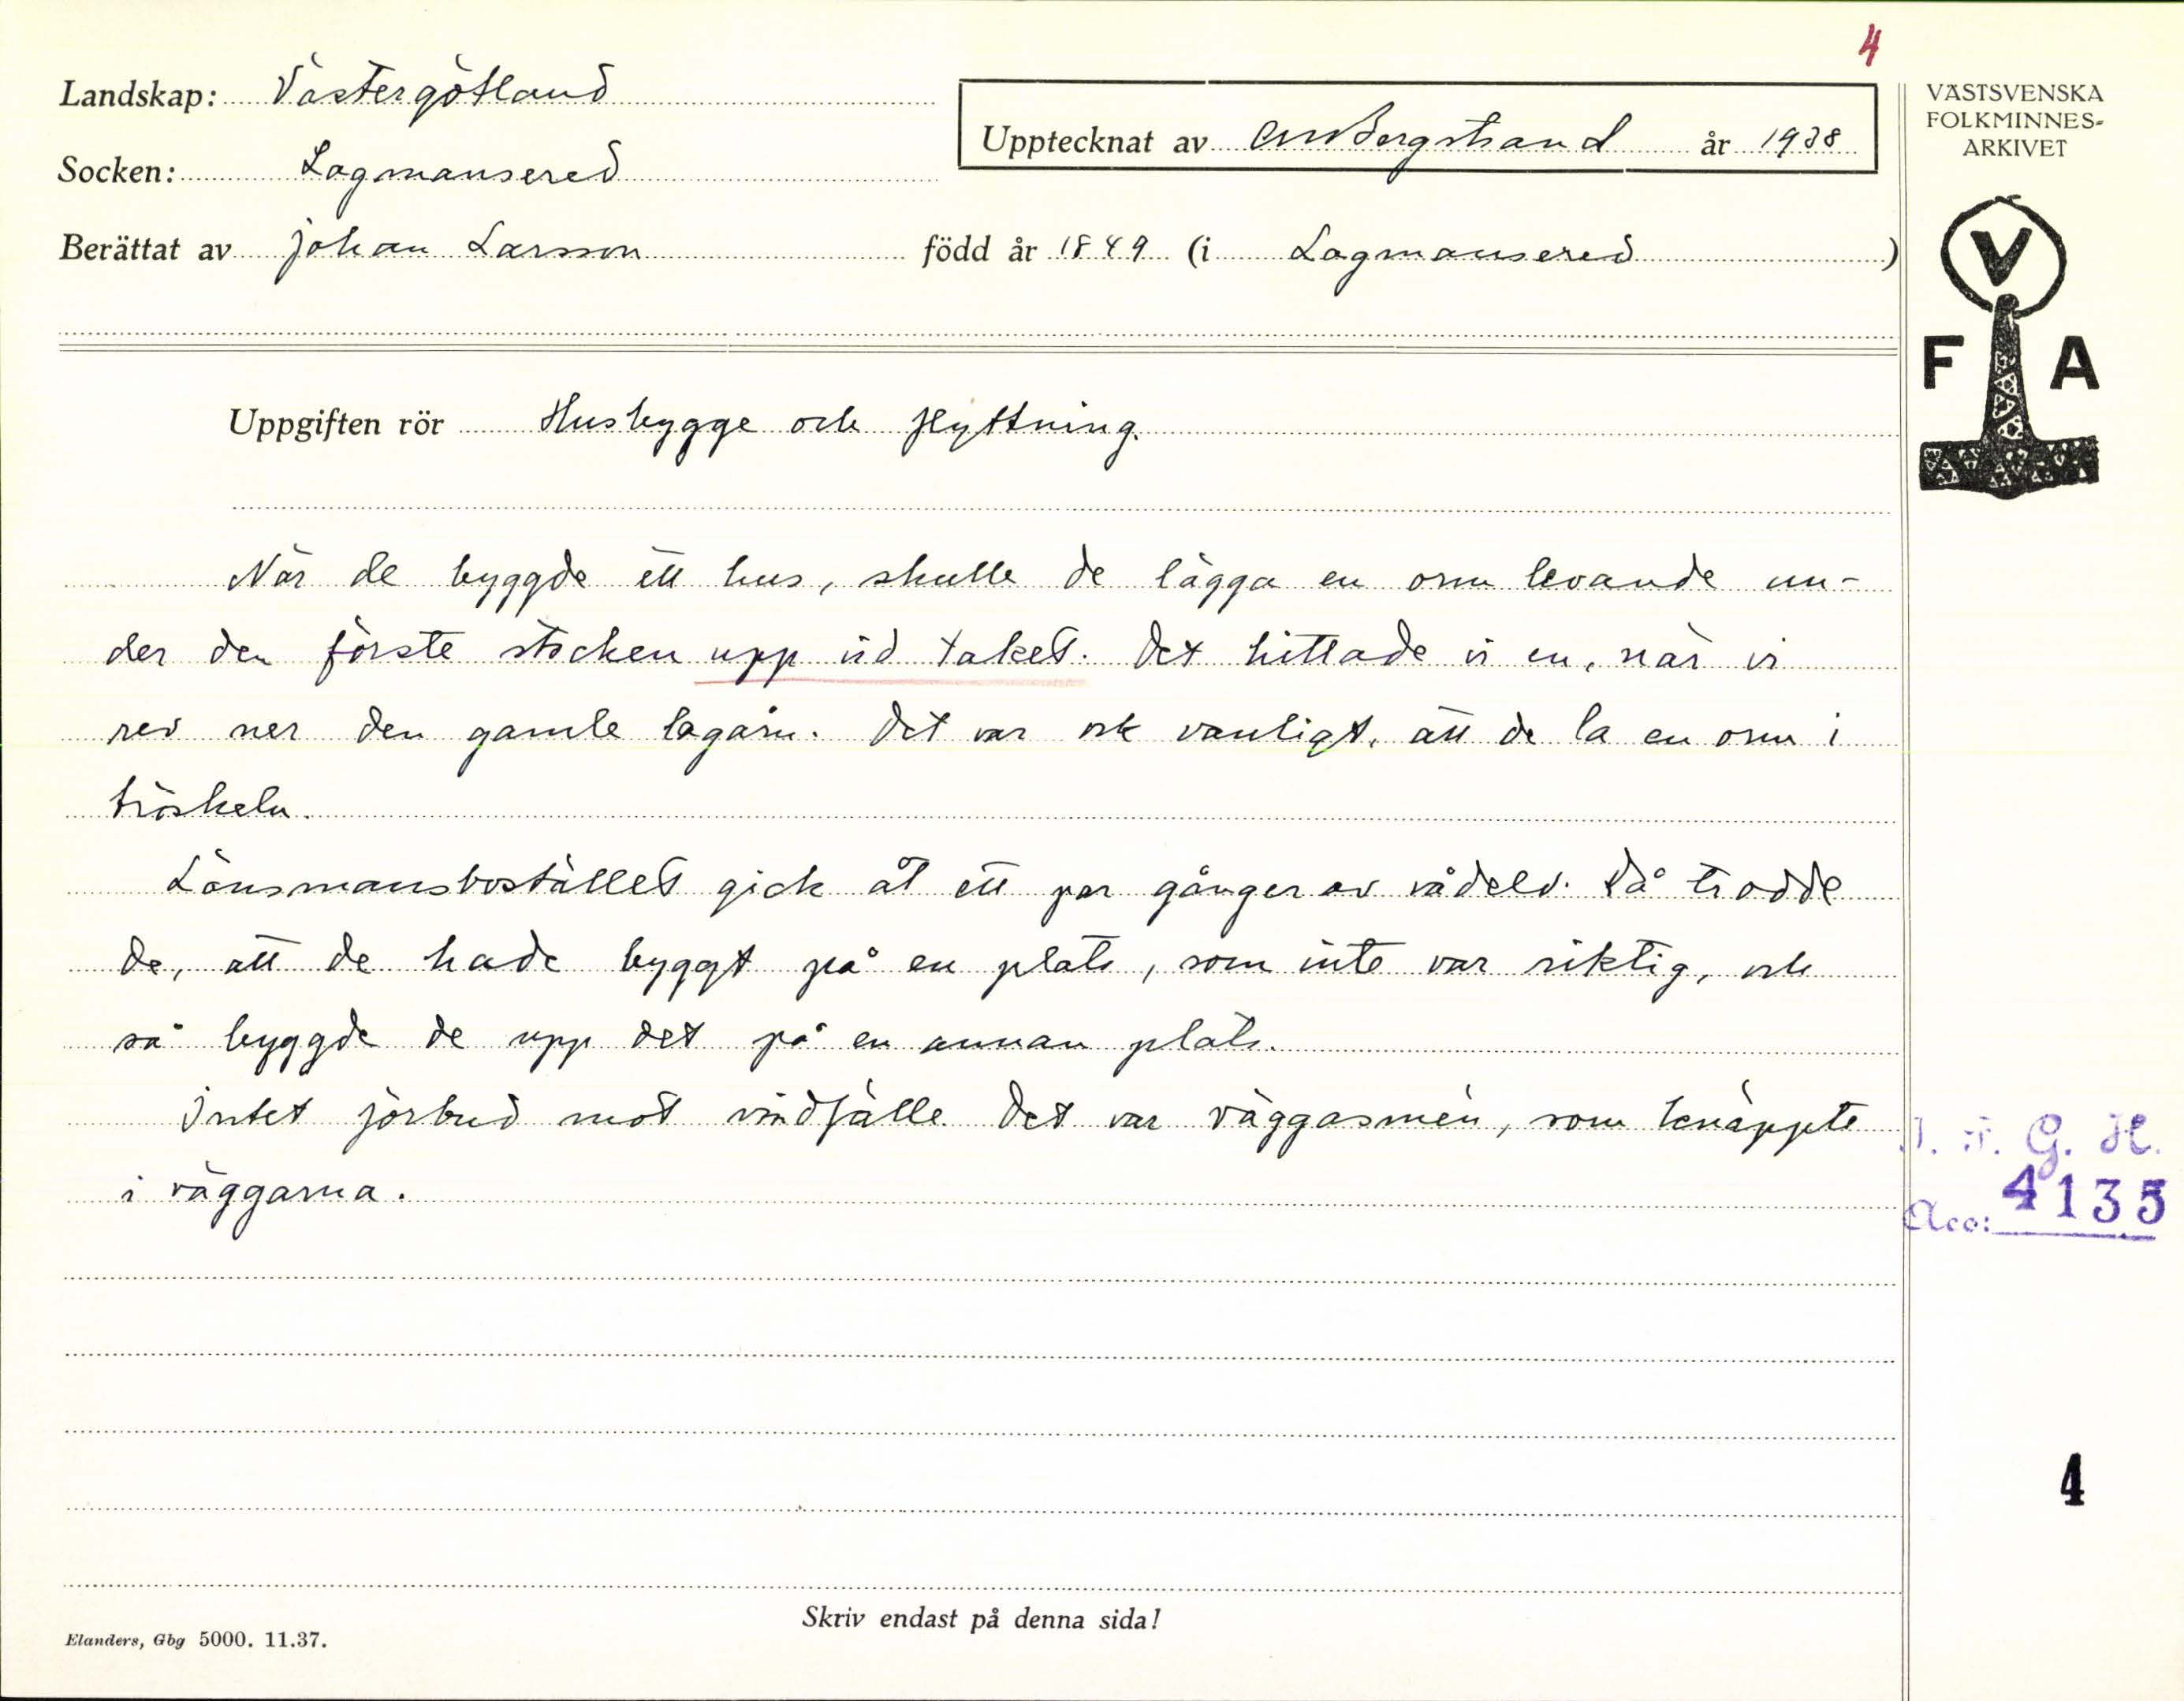 4
Landskap: Västergötland
Upptecknat av CM Bergstrand år 1938
VÄSTSVENSKA
FOLKMINNES-
ARKIVET
Socken: Lagmansered
Berättat av Johan Larsson född år 1849 (i Lagmansered)
V
F A
Uppgiften rör Husbygge och flyttning.
När de byggde ett hus, skulle de lägga en orm levande un-
der den förste stocken upp vid taket. Det hittade vi en, när vi
rev ner den gamle lagårn. Det var ock vanligt, att de la en orm i
tröskeln.
Länsmansbostället gick åt ett par gånger av vådeld. Då trodde
de, att de hade byggt på en plats, som inte var riktig, och
så byggde de upp det på en annan plats.
Intet förbud mot vindfälle. Det var väggasmen, som knäppte
i väggarna.
I. F. G. H.
Acc: 4135
4
Skriv endast på denna sida!
Elanders, Gbg 5000. 11.37.